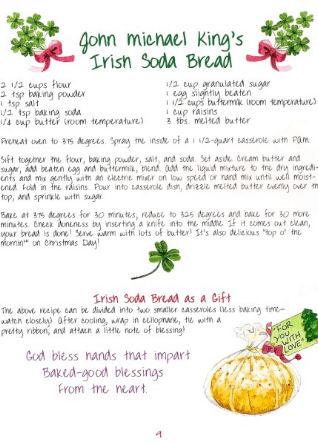 John Michael King's
Irish Soda Bread
2 1/2 cups flour
2 tsp baking powder
1 tsp salt
1/2 tsp baking soda
1/4 cup butter (room temperature)
1/2 cup granulated sugar
1 egg slightly beaten
1 1/2 cups buttermilk (room temperature)
1 cup raisins
3 tbs. melted butter
Preheat oven to 375 degrees. Spray the inside of a 1 1/2-quart casserole with PAM.
Sift together the flour, baking powder, salt, and soda. Set aside. Cream butter and
sugar, add beaten egg and buttermilk, blend. Add the liquid mixture to the dry ingredi-
ents and mix gently with an electric mixer on low speed or hand mix until well moist-
ened. Fold in the raisins. Pour into casserole dish, drizzle melted butter evenly over th
top, and sprinkle with sugar.
Bake at 375 degrees for 30 minutes, reduce to 325 degrees and bake for 30 more
minutes. Check doneness by inserting a knife into the middle. If it comes out clean,
your bread is done! Serve warm with lots of butter! It's also delicious "top o' the
mornin'" on Christmas Day!
Irish Soda Bread as a Gift
The above recipe can be divided into two smaller casseroles (less baking time—
watch closely). After cooling, wrap in cellophane, tie with a
pretty ribbon, and attach a little note of blessing!
FOR
YOU
WITH
LOVE
God bless hands that impart
Baked-good blessings
From the heart.